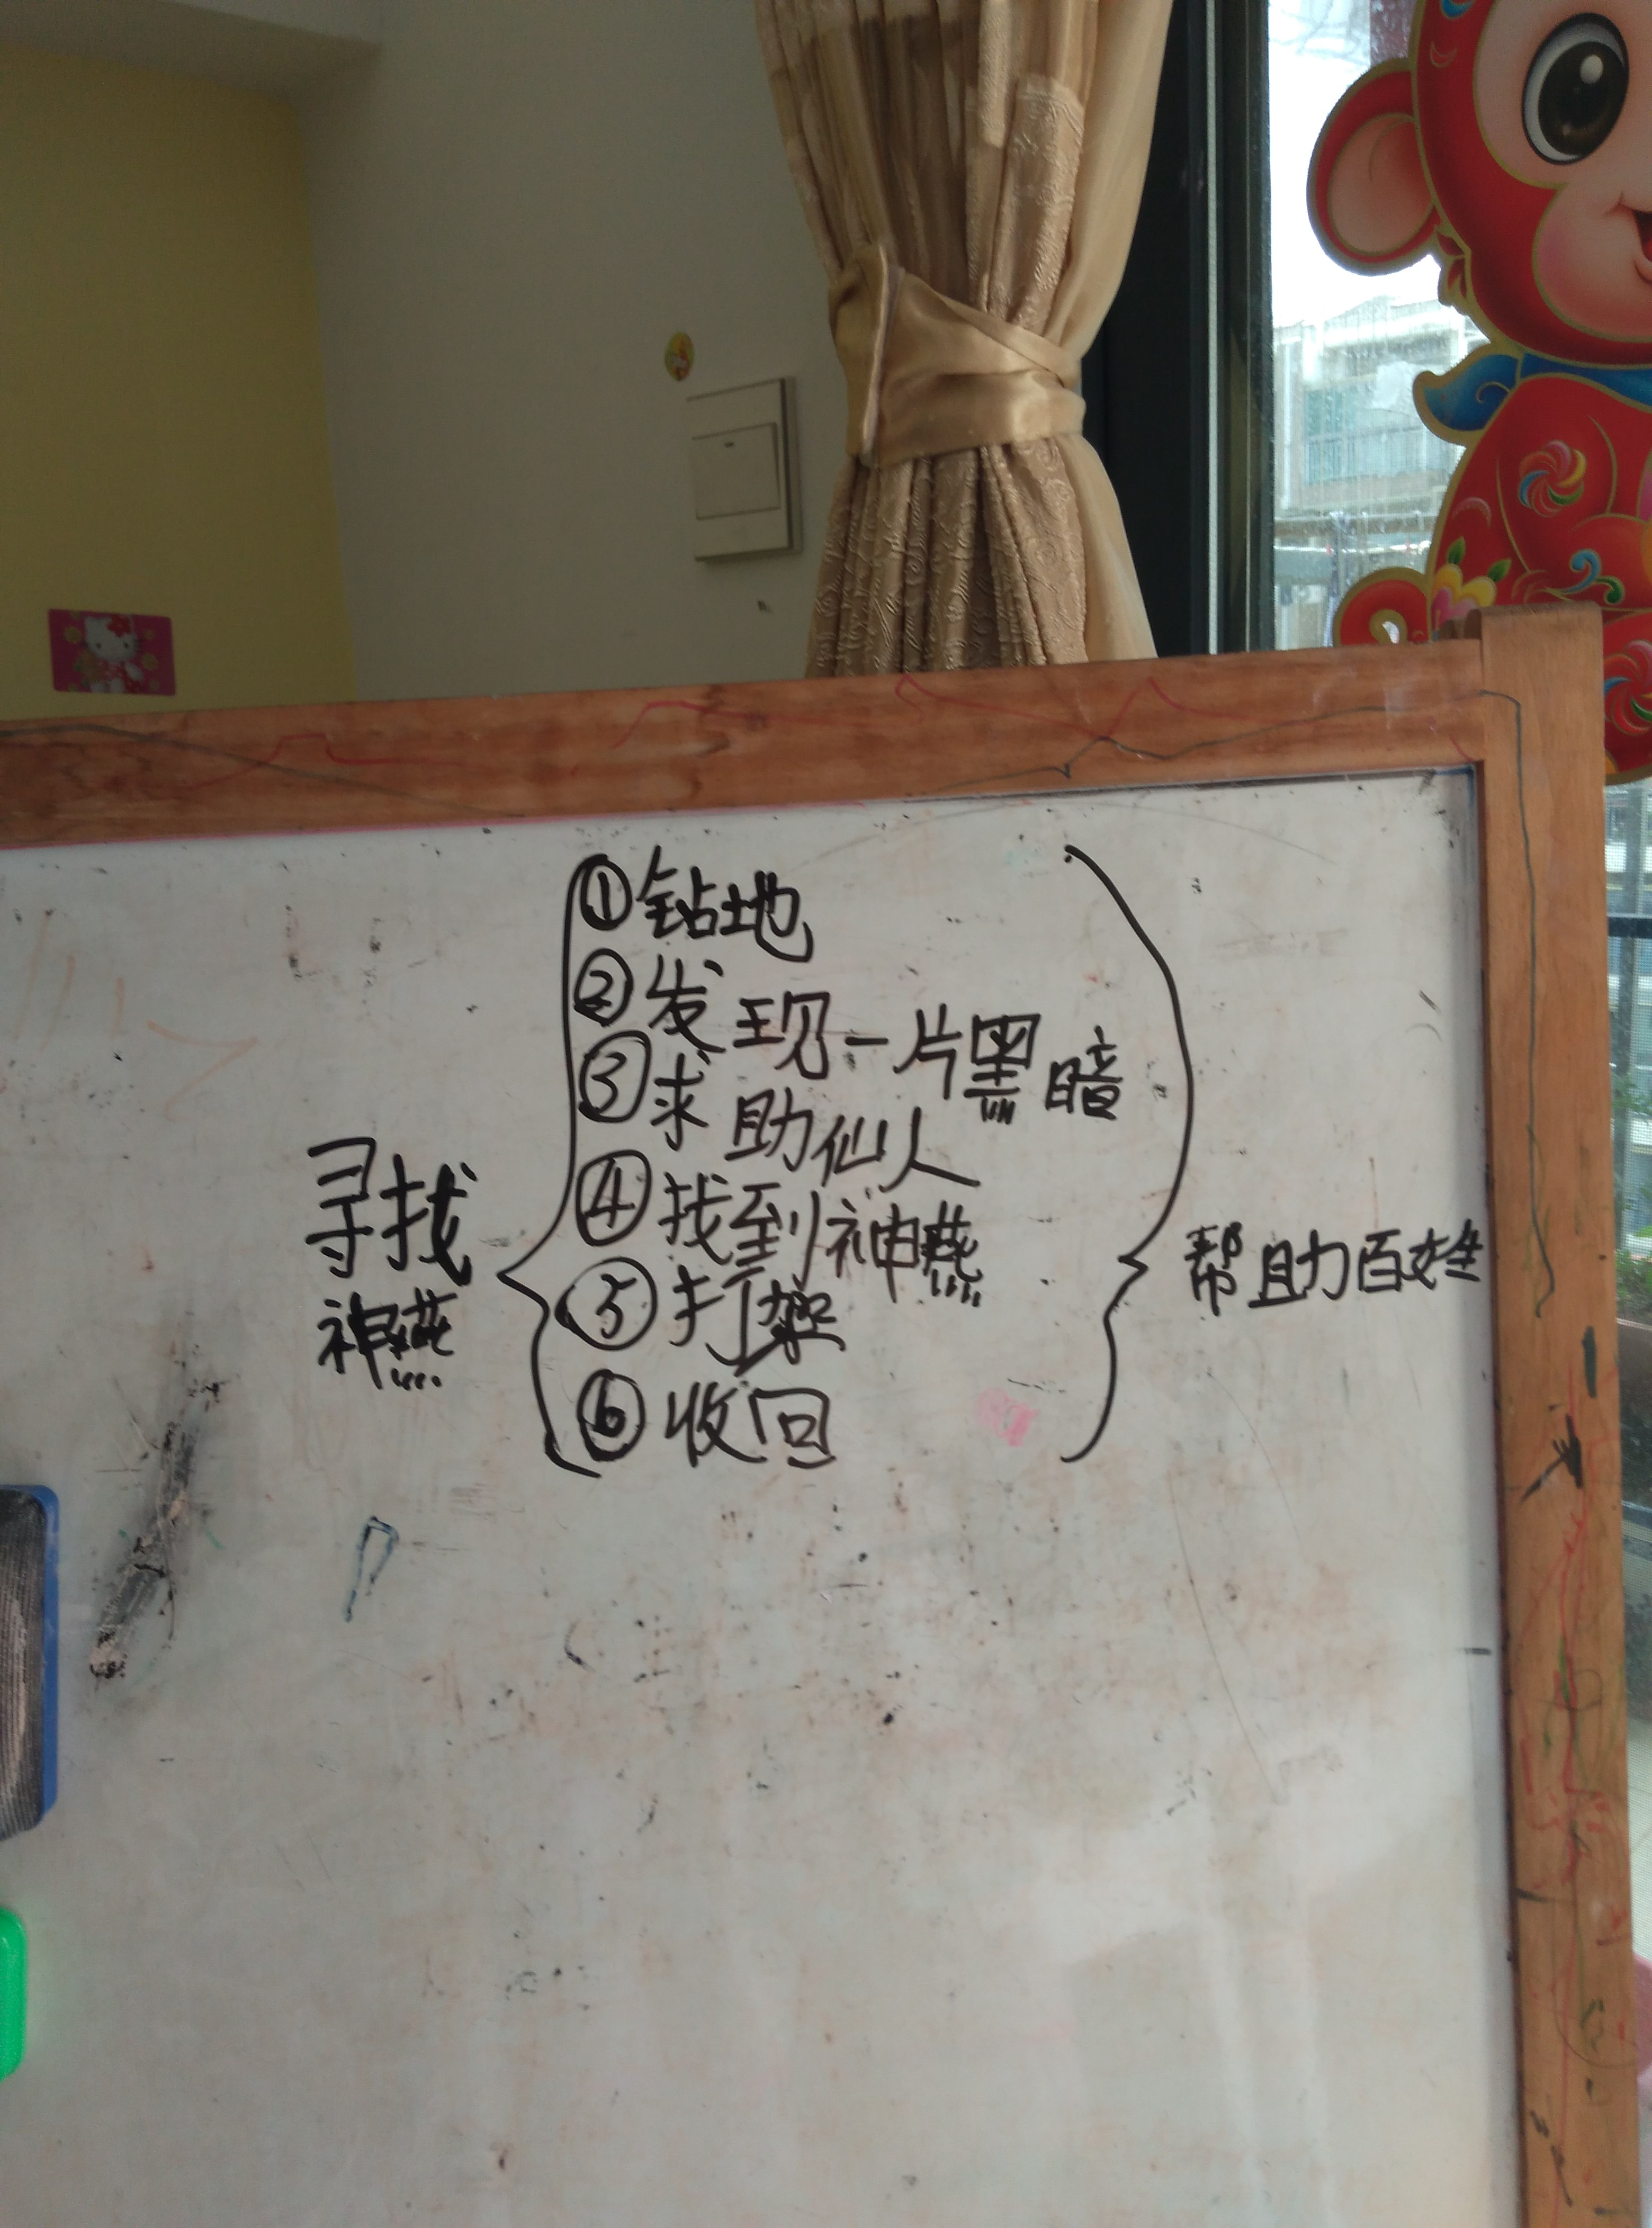 寻找
神燕
①钻地
②发现一片黑暗
③求助仙人
④找到神燕
⑤打架
⑥收回
帮助百姓